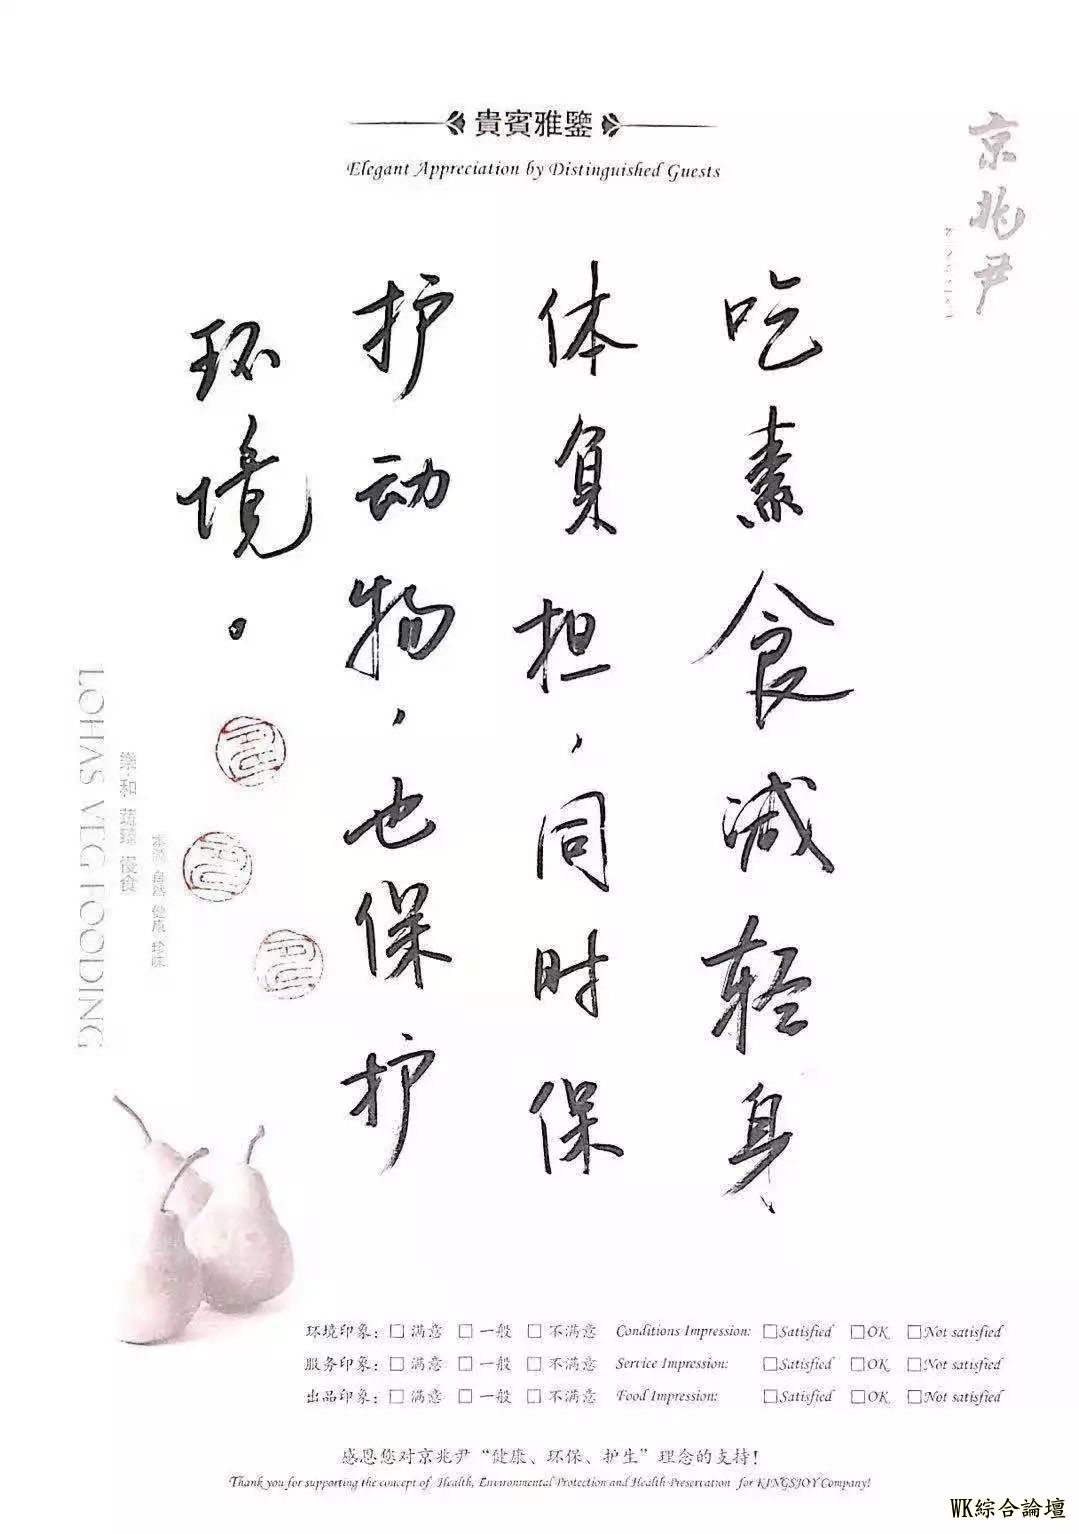 貴賓雅鑒
Elegant Appreciation by Distinguished Guests
京兆尹
吃素食减轻身
体负担,同时保
护动物,也保护
环境。
LOHAS VEG FOODING
樂和 蔬食 慢食
自然
环境印象: □ 满意 □ 一般 □ 不满意 Conditions Impression: □Satisfied □OK □Not satisfied
服务印象: □ 满意 □ 一般 □ 不满意 Service Impression: □Satisfied □OK □Not satisfied
出品印象: □ 满意 □ 一般 □ 不满意 Food Impression: □Satisfied □OK □Not satisfied
感恩您对京兆尹“健康、环保、护生”理念的支持!
Thank you for supporting the concept of Health, Environmental Protection and Health Preservation for KINGSJOY Company!
WK綜合論壇